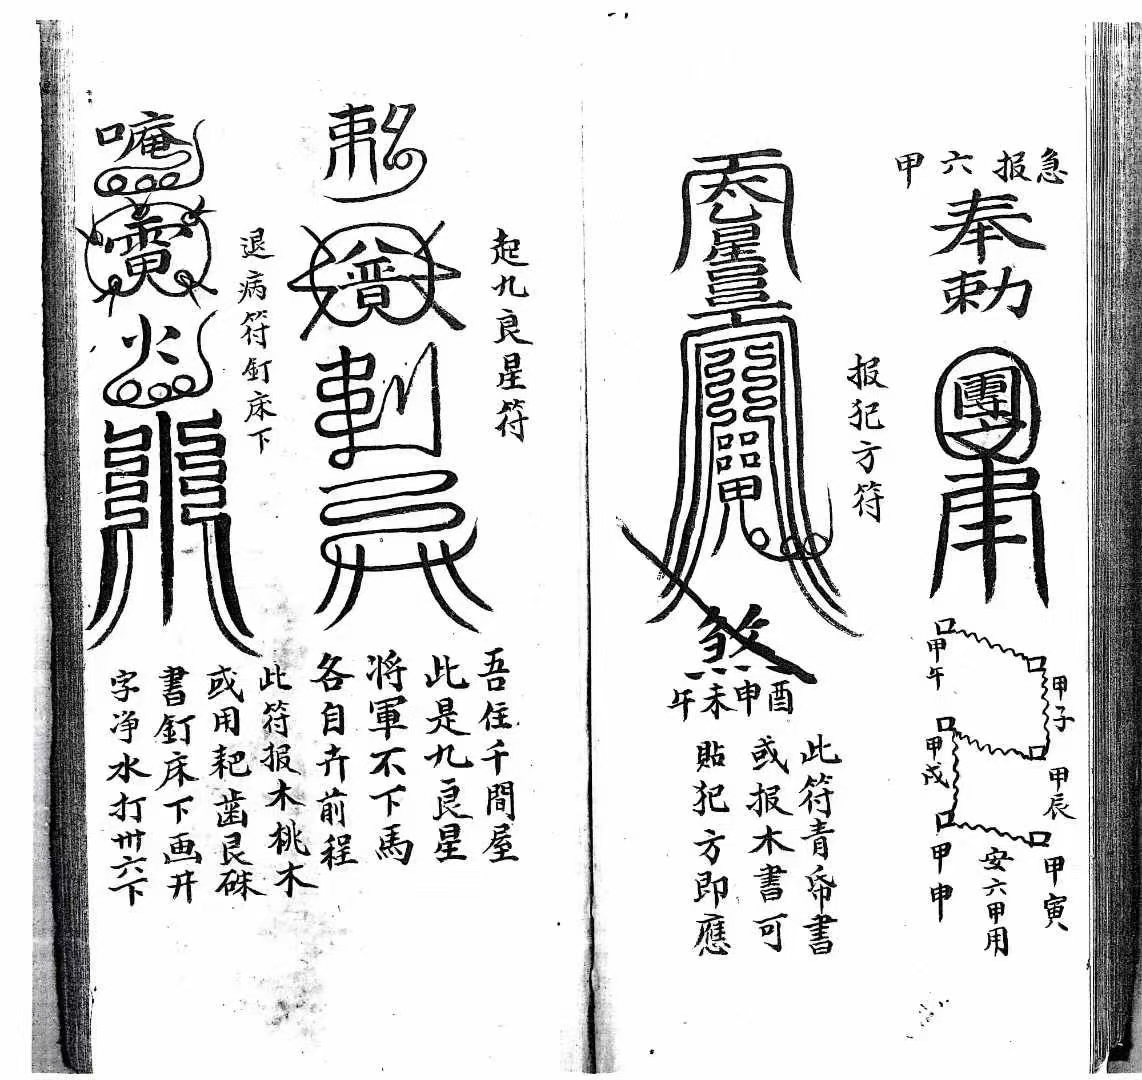 急报六甲
奉勅
團
甲子
甲午
甲辰
甲戌
甲寅
甲申
安六甲用
报犯方符
太乙星
煞
酉申未午
此符青帋書
或报木書可
貼犯方即應
起九良星符
勅
吾住千間屋
此是九良星
将軍不下馬
各自卉前程
退病符釘床下
唵
雷
火
此符报木桃木
或用耙齒艮硃
書釘床下画井
字净水打卅六下